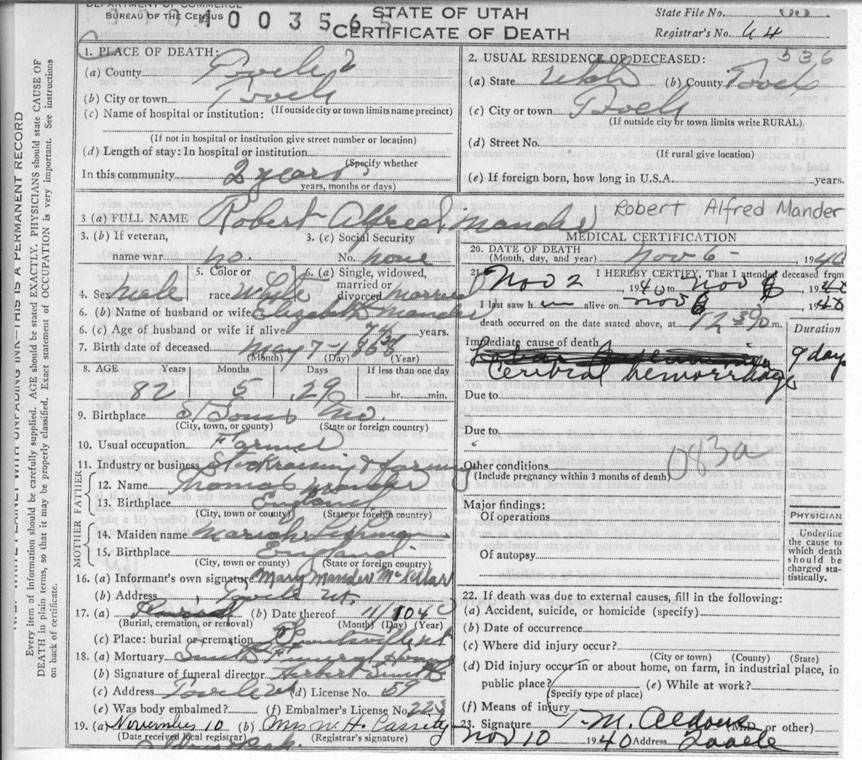 BUREAU OF THE CENSUS
400356
STATE OF UTAH
CERTIFICATE OF DEATH
State File No.
Registrar's No. 64
1. PLACE OF DEATH:
(a) County Tooele 2
(b) City or town Tooele
(If outside city or town limits name precinct)
(c) Name of hospital or institution:
(If not in hospital or institution give street number or location)
(d) Length of stay: In hospital or institution
(Specify whether
In this community 2 years
years, months or days)
2. USUAL RESIDENCE OF DECEASED: 536
(a) State Utah (b) County Tooele
(c) City or town Tooele
(If outside city or town limits write RURAL)
(d) Street No.
(If rural give location)
(e) If foreign born, how long in U.S.A. years.
3 (a) FULL NAME Robert Alfred Mander
Robert Alfred Mander
3. (b) If veteran, name war no.
3. (c) Social Security No. none
4. Sex male
5. Color or race White
6. (a) Single, widowed, married or divorced married
6. (b) Name of husband or wife Elizabeth Mander
6. (c) Age of husband or wife if alive 74 years.
7. Birth date of deceased May 7-1868
(Month) (Day) (Year)
8. AGE Years Months Days If less than one day
82 5 29 hr. min.
9. Birthplace St Louis Mo.
(City, town, or county) (State or foreign country)
10. Usual occupation Farmer
11. Industry or business Stockraising & farming
FATHER
12. Name Thomas Mander
13. Birthplace England
(City, town or county) (State or foreign country)
MOTHER
14. Maiden name Mariah
15. Birthplace England
(City, town or county) (State or foreign country)
16. (a) Informant's own signature Mary Mander McKellar
(b) Address Tooele Ut.
17. (a) (b) Date thereof 11/10 40
(Burial, cremation, or removal) (Month) (Day) (Year)
(c) Place: burial or cremation Grantsville Ut
18. (a) Mortuary Smith Funeral Home
(b) Signature of funeral director Herbert Smith
(c) Address Tooele Ut (d) License No. 69
(e) Was body embalmed? (f) Embalmer's License No. 223
19. (a) November 10 (b) Mrs W. H. Cassity
(Date received local registrar) (Registrar's signature)
MEDICAL CERTIFICATION
20. DATE OF DEATH
(Month, day, and year) Nov 6 - 1940
21. I HEREBY CERTIFY, That I attended deceased from
Nov 2, 1940 to Nov 6, 1940
I last saw him alive on Nov 6 1940
death occurred on the date stated above, at 12 30 m.
Duration
Immediate cause of death
9 days
Cerebral hemorrhage
Due to
Due to
Other conditions
(Include pregnancy within 3 months of death)
083a
Major findings:
Of operations
Of autopsy
PHYSICIAN
Underline the cause to which death should be charged statistically.
22. If death was due to external causes, fill in the following:
(a) Accident, suicide, or homicide (specify)
(b) Date of occurrence
(c) Where did injury occur?
(City or town) (County) (State)
(d) Did injury occur in or about home, on farm, in industrial place, in
public place? (e) While at work?
(Specify type of place)
(f) Means of injury
23. Signature T. M. Aldous (M.D. or other)
Nov 10 1940 Address Tooele
THIS IS A PERMANENT RECORD
Every item of information should be carefully supplied. AGE should be stated EXACTLY. PHYSICIANS should state CAUSE OF
DEATH in plain terms, so that it may be properly classified. Exact statement of OCCUPATION is very important. See instructions
on back of certificate.